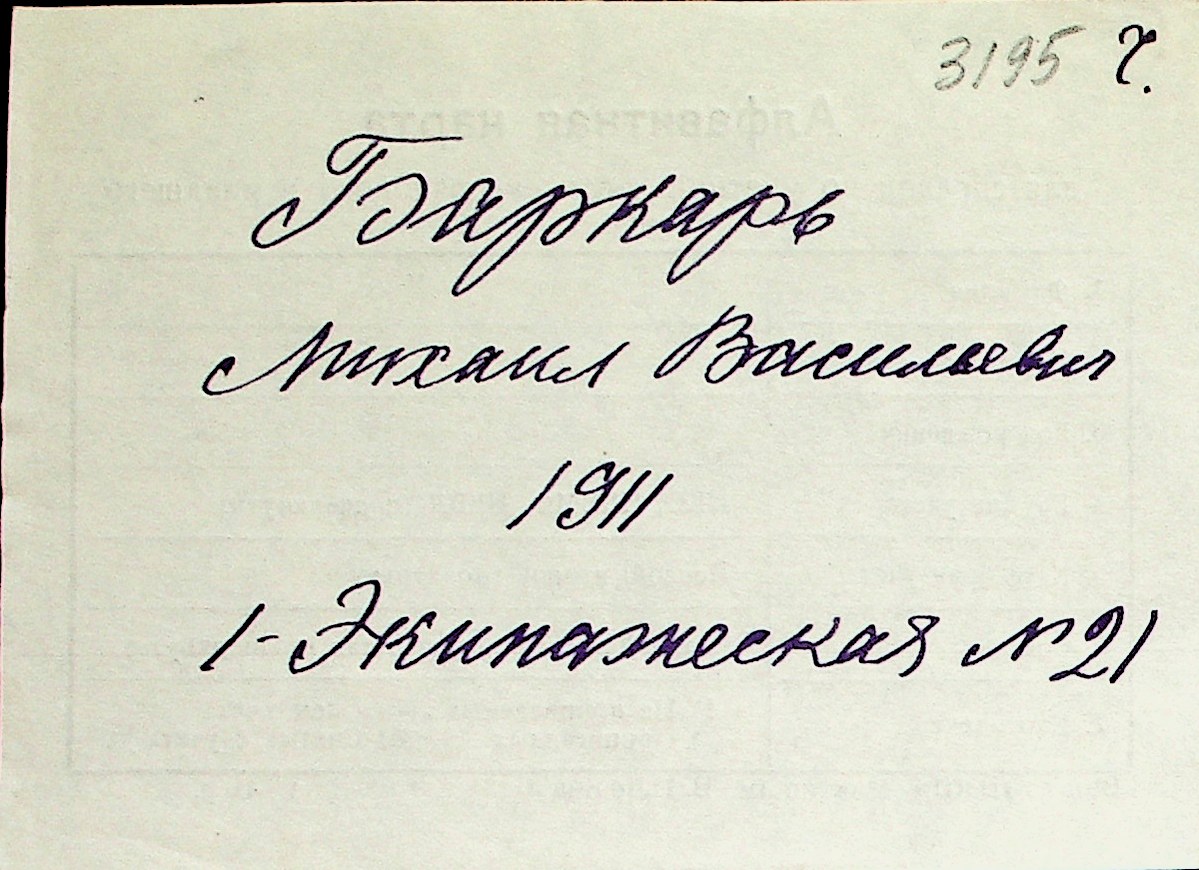 3195 Ч.
Баркарь
Михаил Васильевич
1911
1-Экипажеская № 21